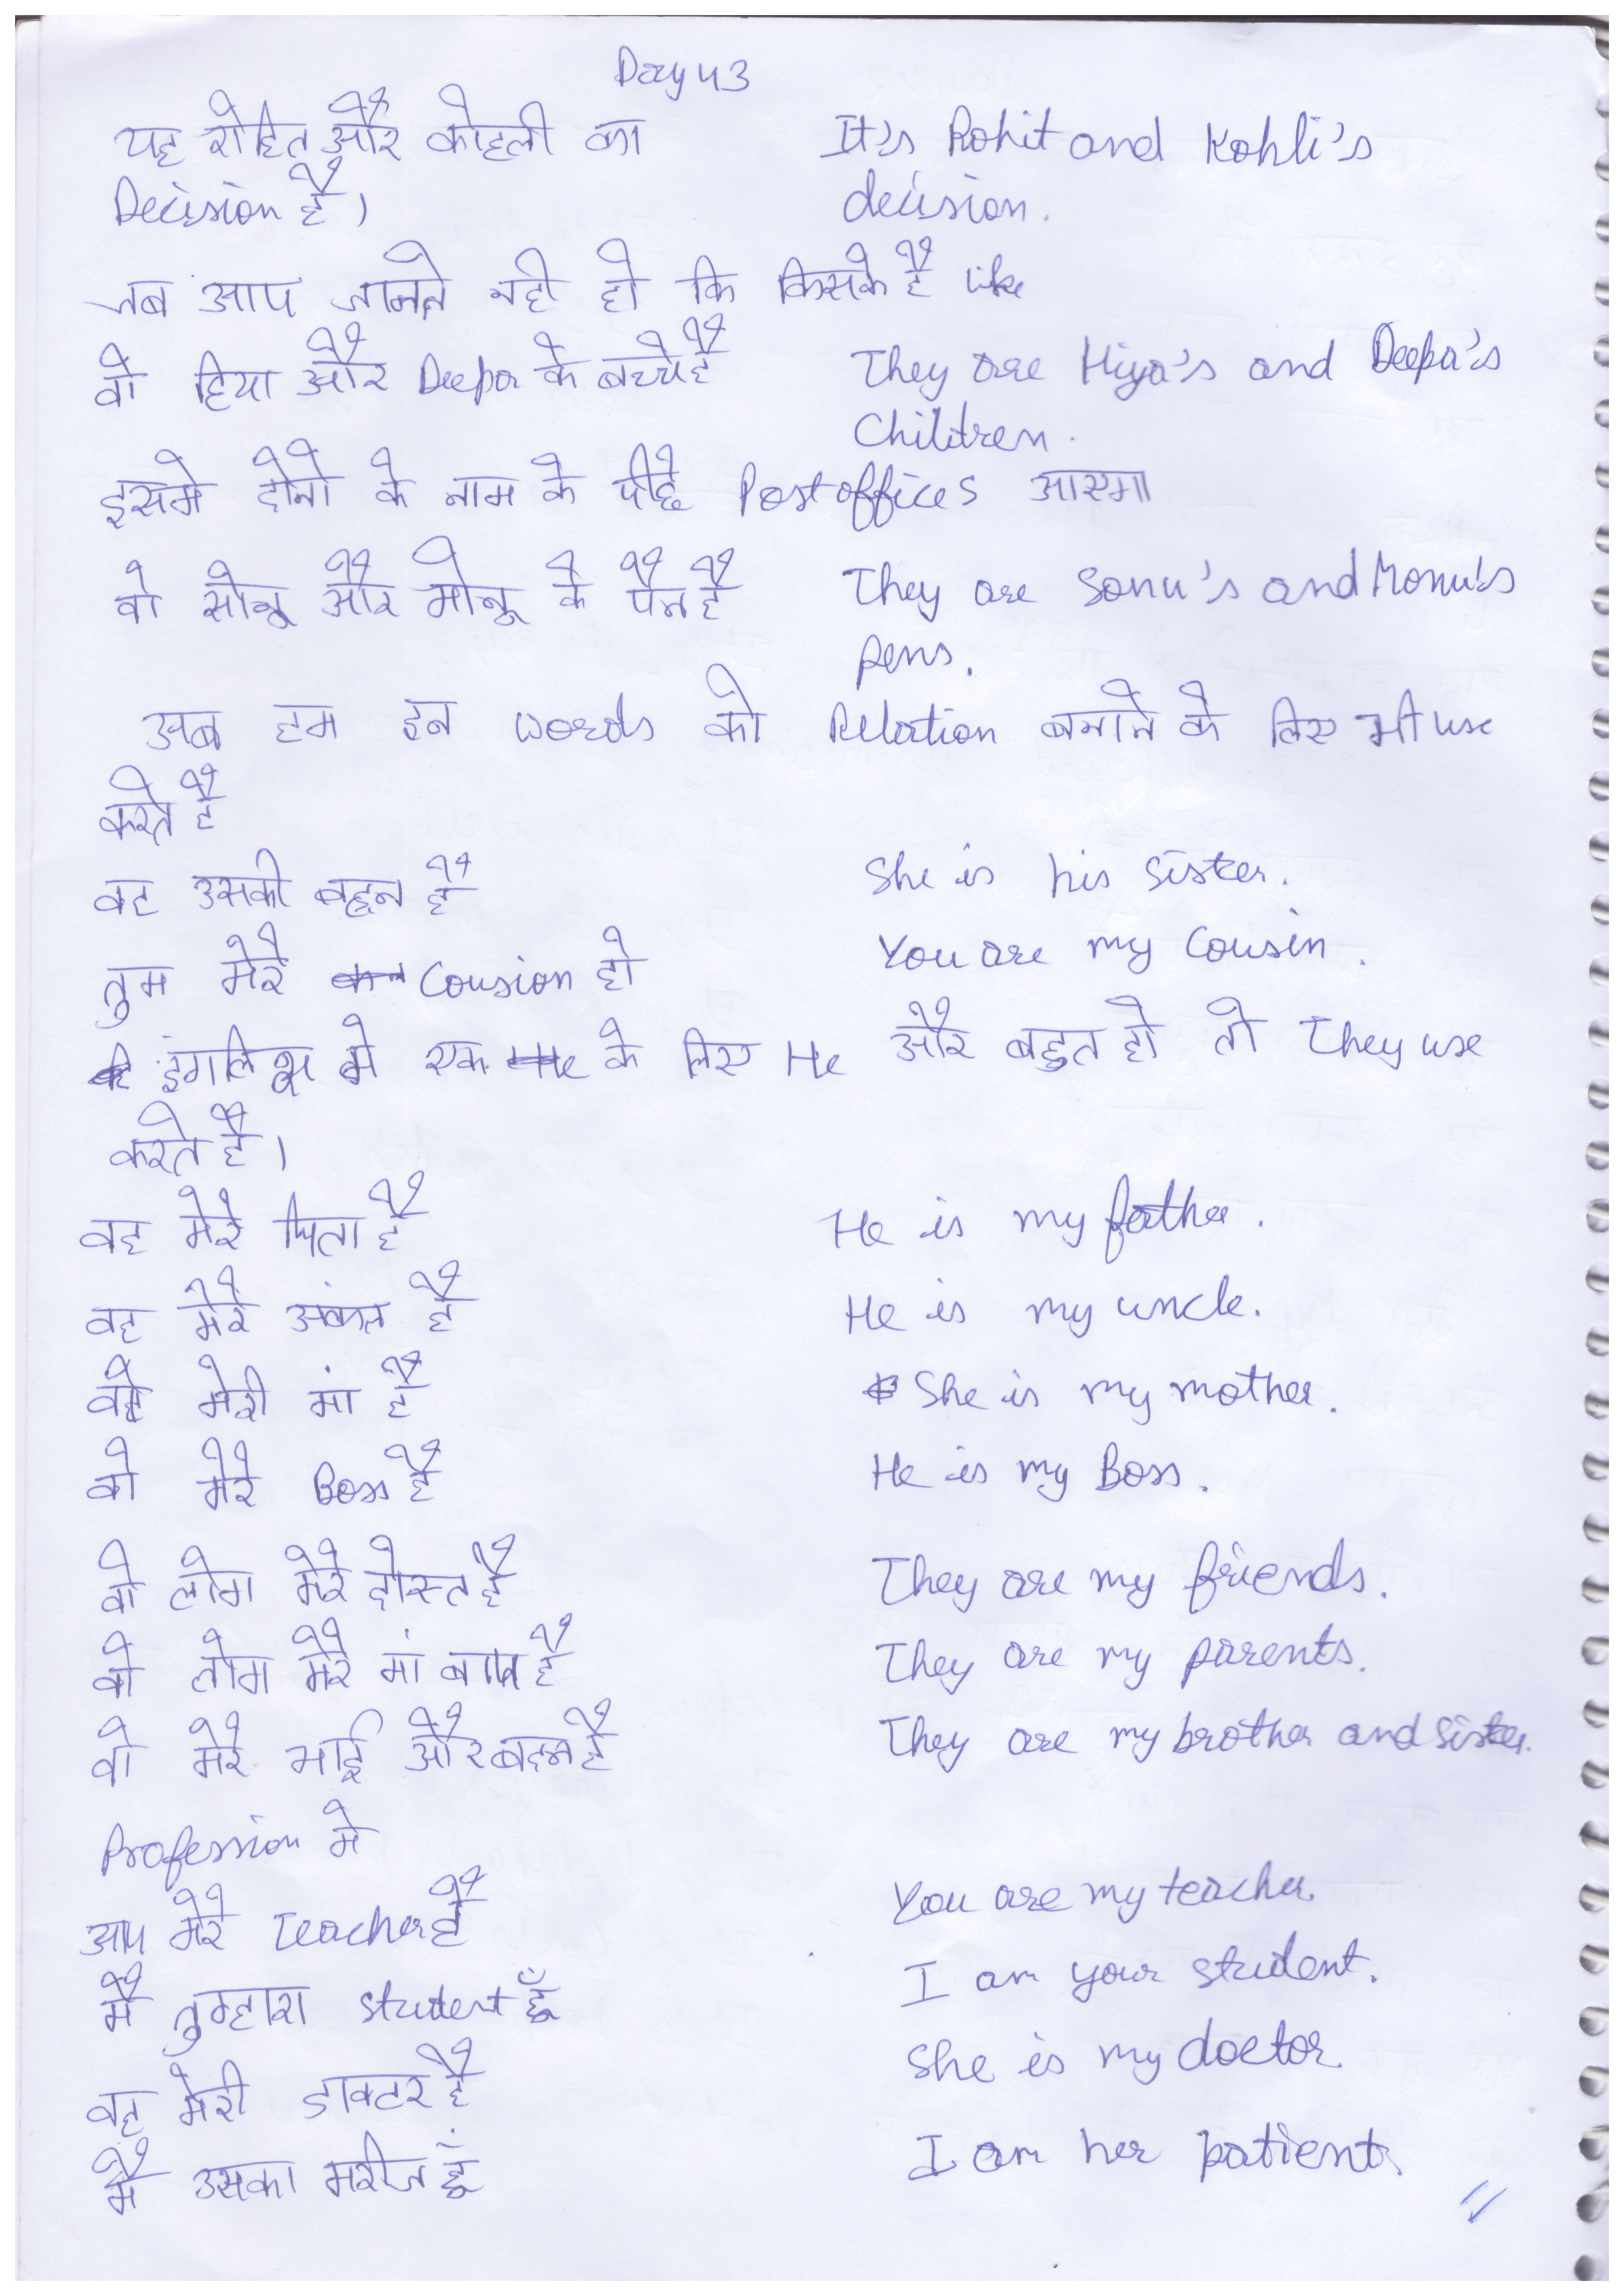 Day 43
यह रोहित और कोहली का It's Rohit and Kohli's
Decision है। decision.
जब आप जानते नही हो कि किसके है like
वो हिया और Deepa के बच्चे है They are Hiya's and Deepa's
Children.
इसमे दोनो के नाम के पीछे Postoffices आएगा
वो सोनू और मोनू के पैन है They are Sonu's and Monu's
pens.
अब हम इन words को Relation बनाने के लिए भी use
करते है
वह उसकी बहन है She is his sister.
तुम मेरे Cousion हो You are my Cousin.
इंगलिश मे एक के लिए He और बहुत हो तो They use
करते है।
वह मेरे पिता है He is my father.
वह मेरे अंकल है He is my uncle.
वह मेरी मां है She is my mother.
वो मेरे Boss है He is my Boss.
वो लोग मेरे दोस्त है They are my friends.
वो लोग मेरे मां बाप है They are my parents.
वो मेरे भाई और बहन है They are my brother and sister.
Profession मे
आप मेरे Teacher है You are my teacher.
मै तुम्हारा student हूँ I am your student.
वह मेरी डाक्टर है She is my doctor.
मै उसका मरीज हूँ I am her patient.